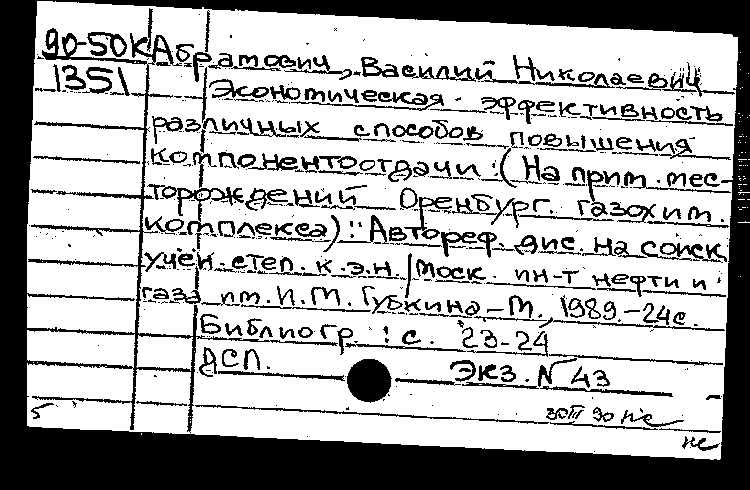 90-50К Абрамович, Василий Николаевич
1351 Экономическая эффективность
различных способов повышения
компонентоотдачи: (На прим. мес-
торождений Оренбург. газохим.
комплекса): Автореф. дис. на соиск.
учён. степ. к.э.н. / Моск. ин-т нефти и
газа им. И.М. Губкина. - М., 1989. - 24с.
Библиогр.: с. 23-24
ДСП. Экз. N 43
5 30III 90 нс
нс